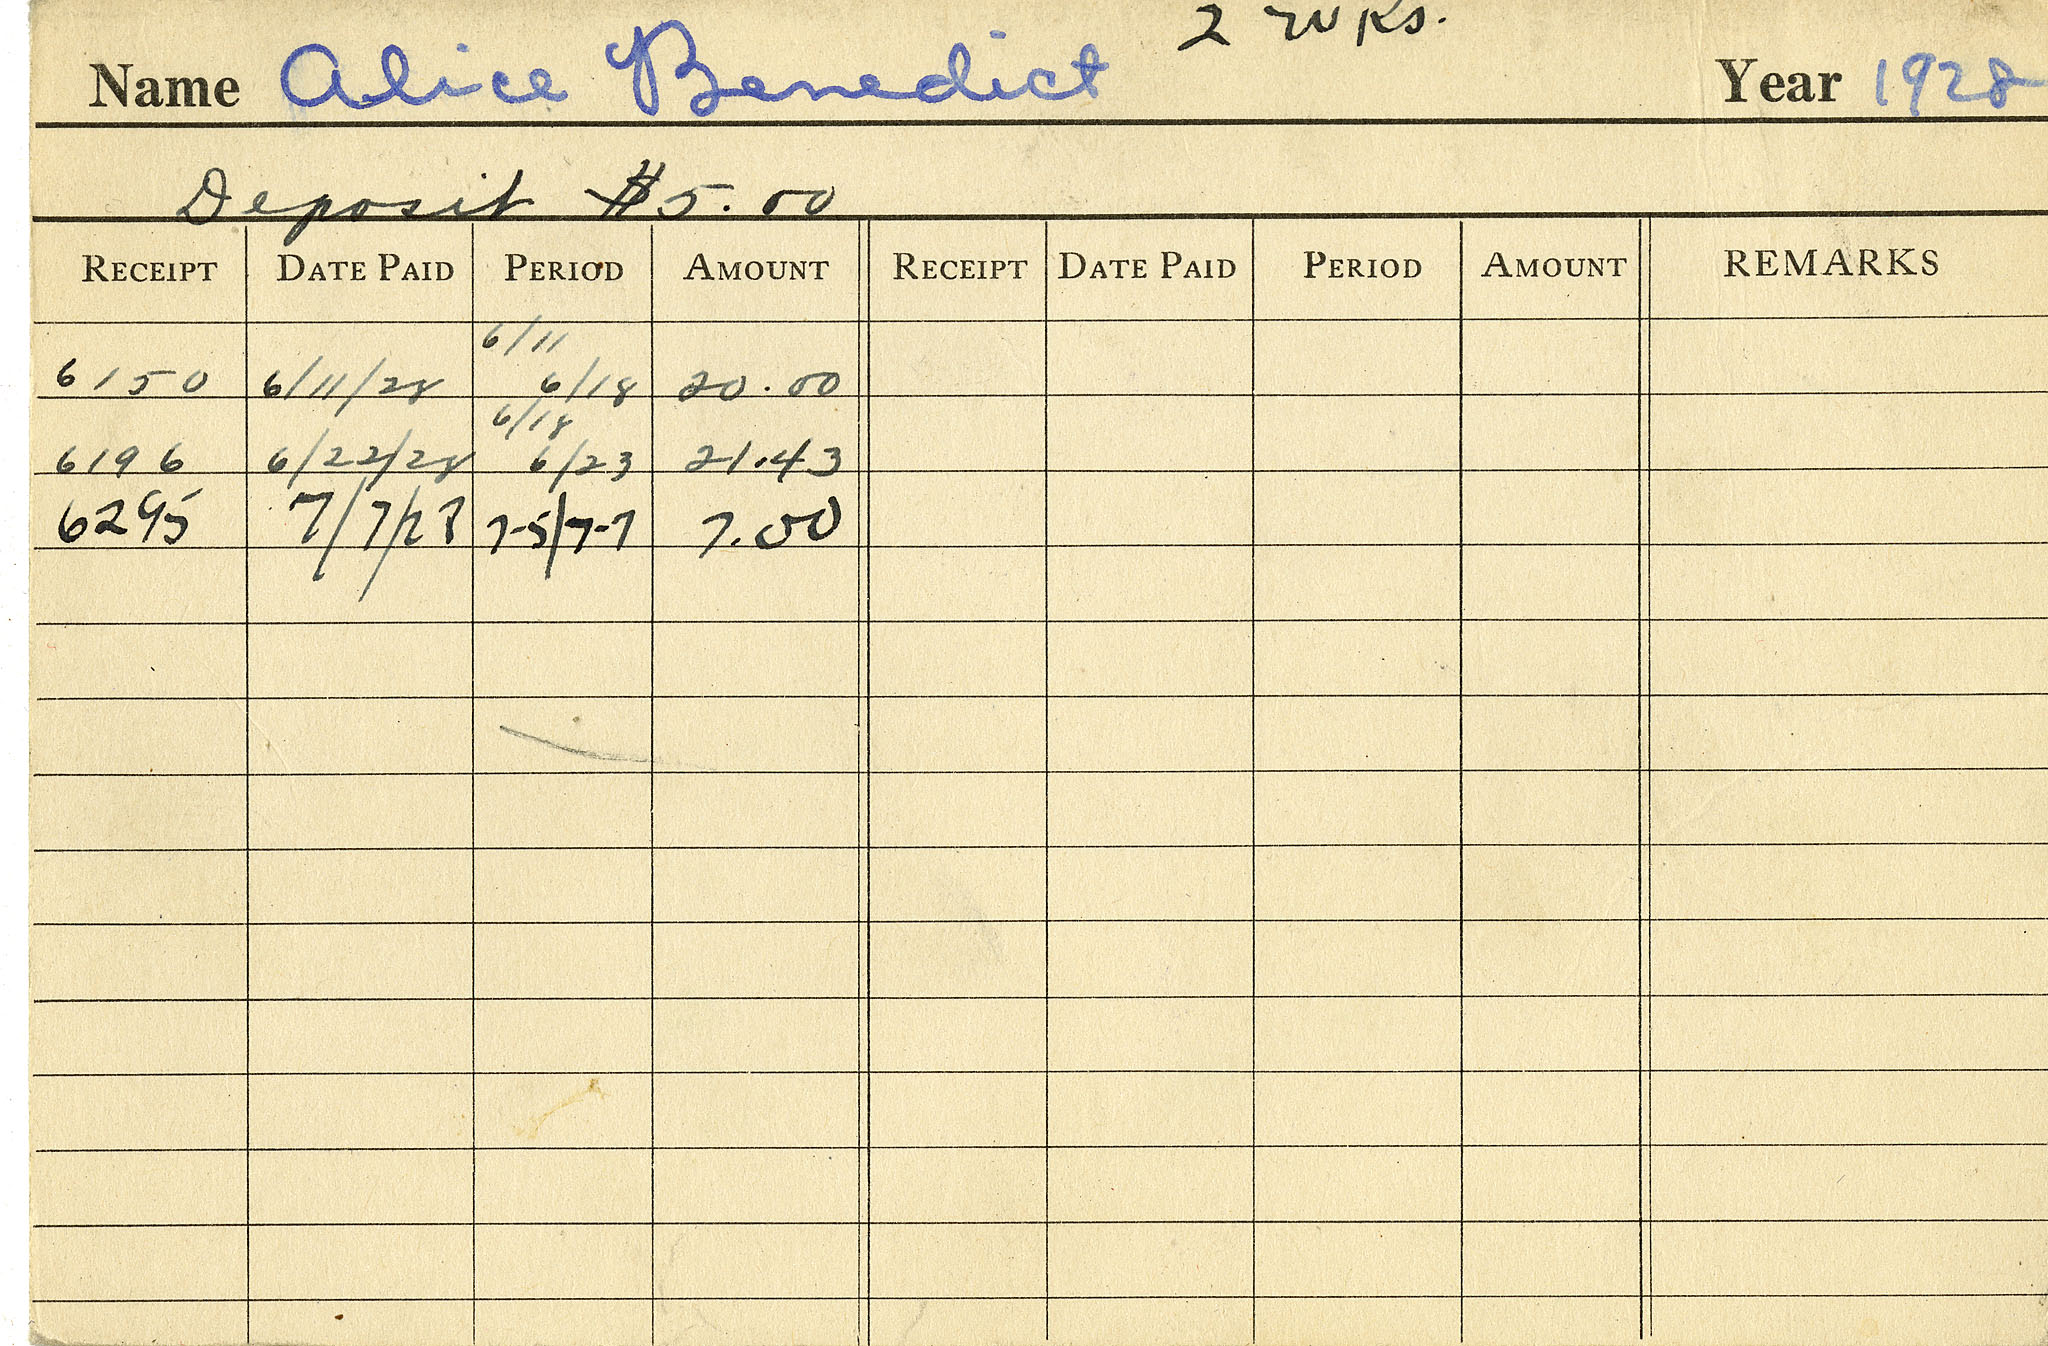 2 wks.
Name Alice Benedict Year 1928
Deposit $5.00
RECEIPT DATE PAID PERIOD AMOUNT RECEIPT DATE PAID PERIOD AMOUNT REMARKS
6/11
6150 6/11/28 6/18 20.00
6/18
6196 6/22/28 6/23 21.43
6295 7/7/28 7-5/7-7 7.00